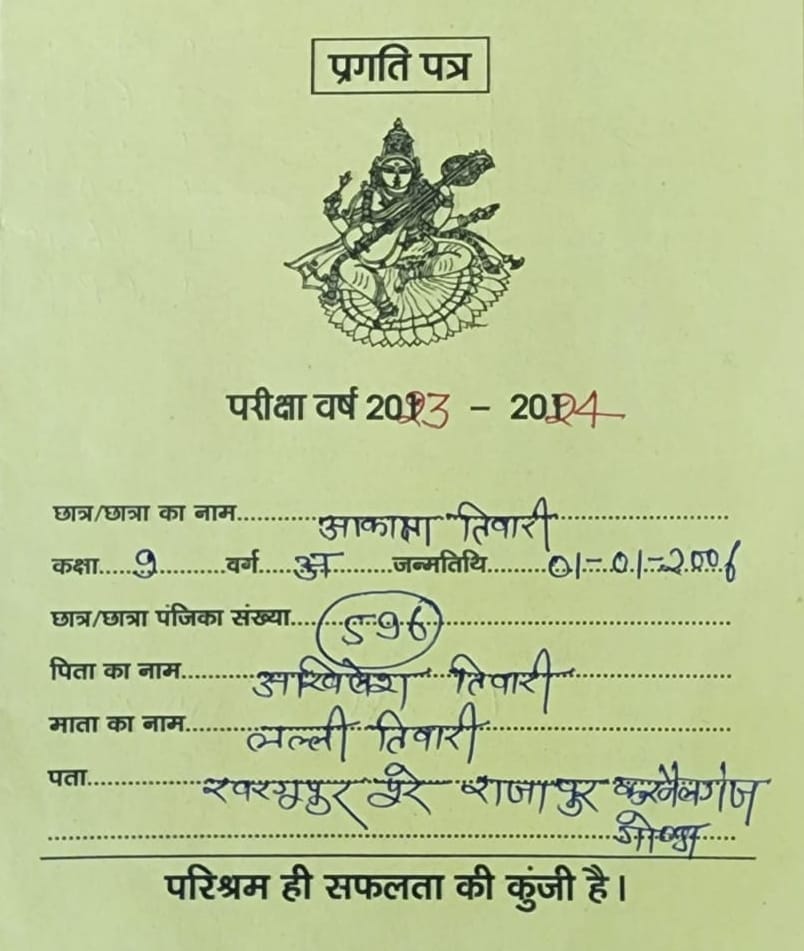 प्रगति पत्र
परीक्षा वर्ष 2023 - 2024
छात्र/छात्रा का नाम आकाक्षा तिवारी
कक्षा 9 वर्ग अ जन्मतिथि 01-01-2006
छात्र/छात्रा पंजिका संख्या 596
पिता का नाम अखिलेश तिवारी
माता का नाम लल्ली तिवारी
पता पुरे राजापुर करनैलगंज
गोण्डा
परिश्रम ही सफलता की कुंजी है।